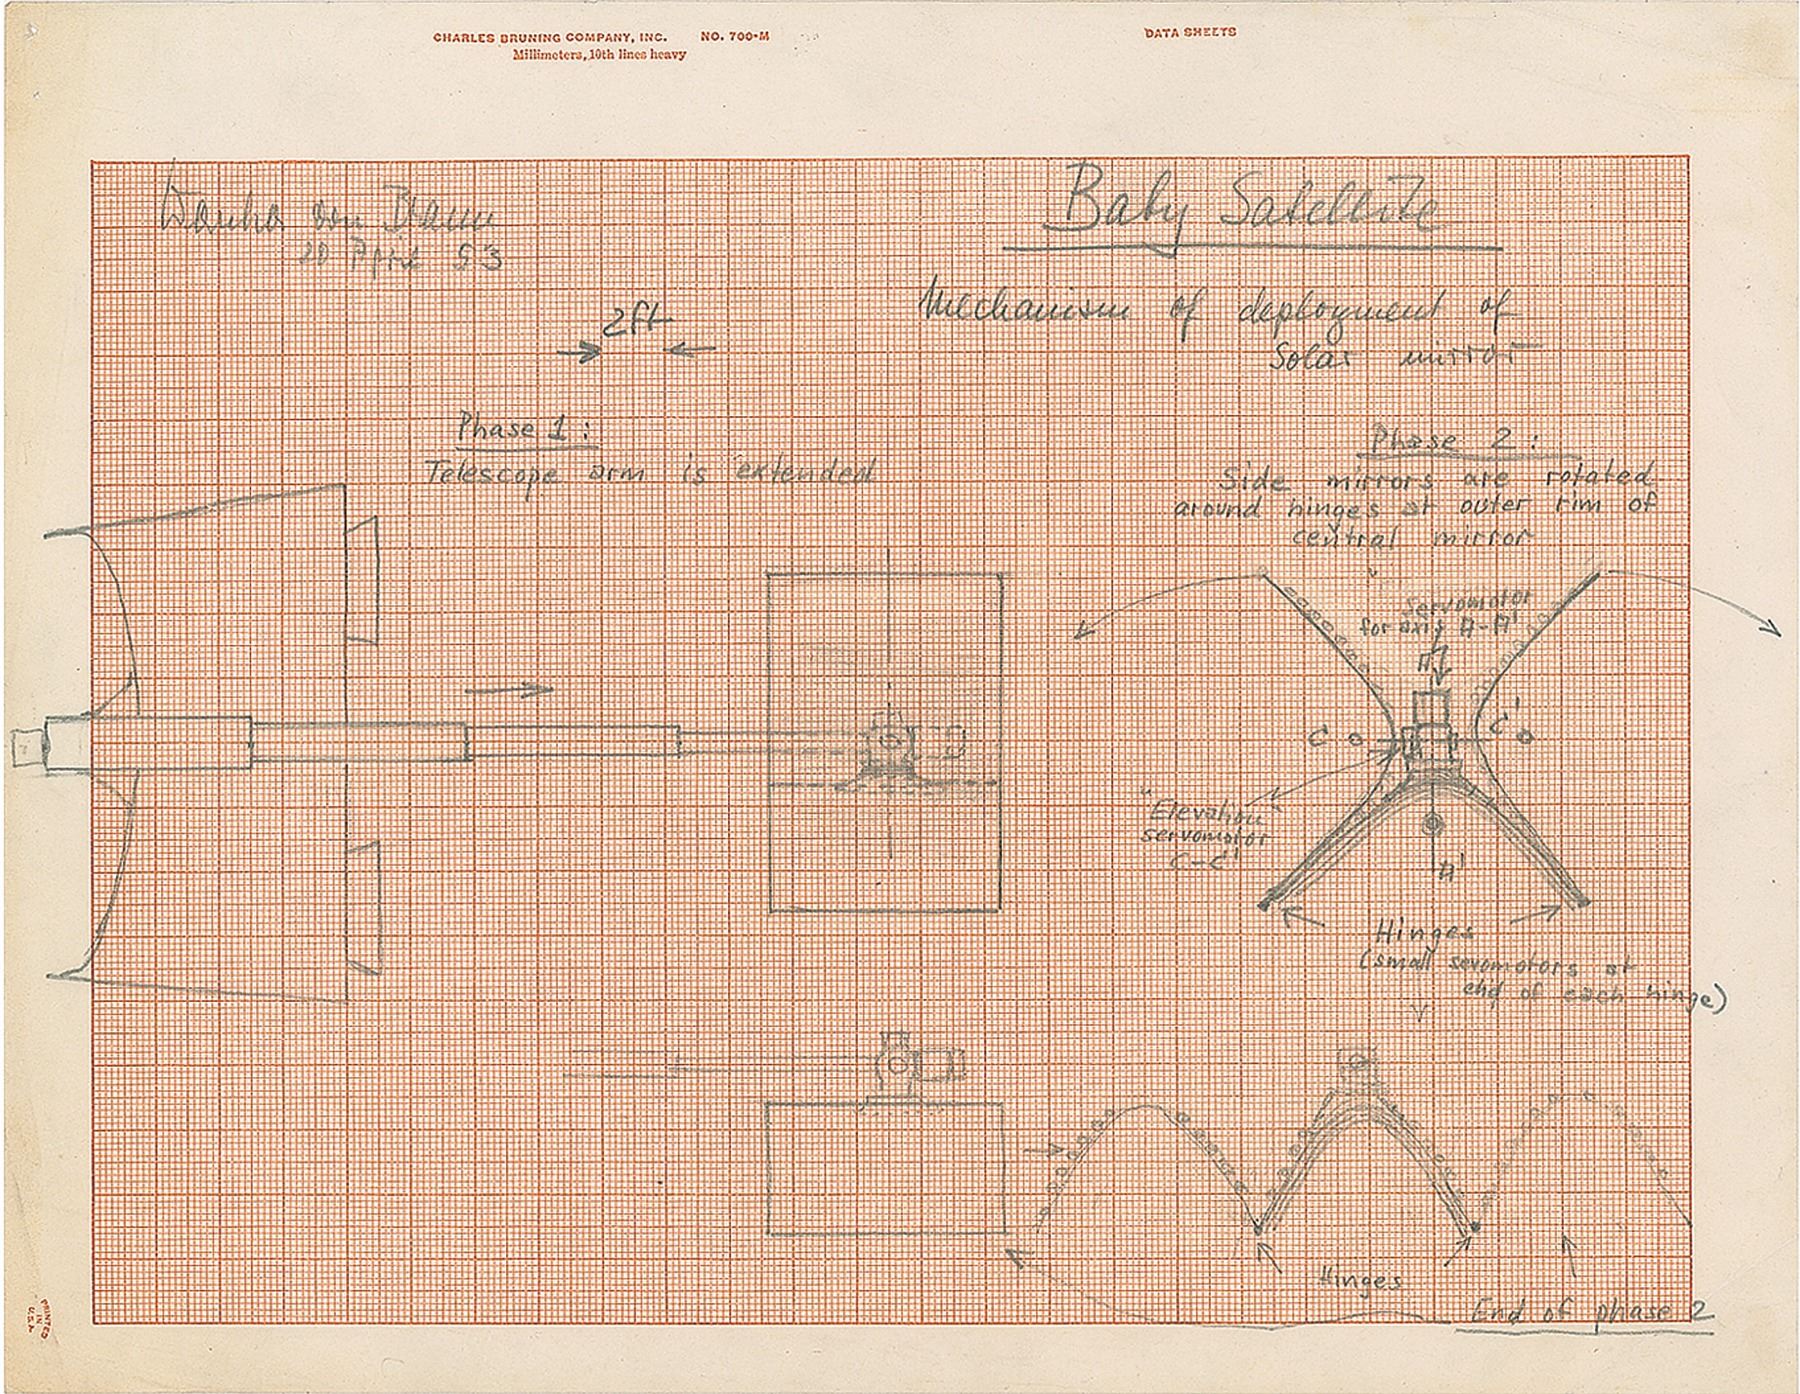 CHARLES BRUNING COMPANY, INC. NO. 700-M
Millimeters, 10th lines heavy
DATA SHEETS
von Braun
20 April 53
Baby Satellite
Mechanism of deployment of
Solar mirror
2ft
Phase 1:
Telescope arm is extended
Phase 2:
Side mirrors are rotated
around hinges at outer rim of
central mirror
Servomotor
for axis A-A'
A
C
C'
"Elevation"
servomotor
C-C'
A'
Hinges
(small sevomotors at
end of each hinge)
Hinges
End of phase 2
PRINTED
IN
U.S.A.